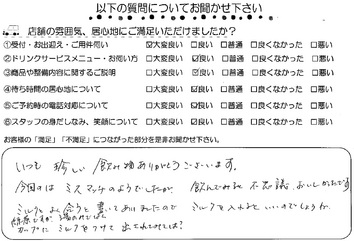 以下の質問についてお聞かせ下さい
店舗の雰囲気、居心地にご満足いただけましたか?
①受付・お出迎え・ご用件伺い ☑大変良い □良い □普通 □良くなかった □悪い
②ドリンクサービスメニュー・お伺い方 □大変良い ☑良い □普通 □良くなかった □悪い
③商品や整備内容に関するご説明 □大変良い ☑良い □普通 □良くなかった □悪い
④待ち時間の居心地について □大変良い ☑良い □普通 □良くなかった □悪い
⑤ご予約時の電話対応について □大変良い ☑良い □普通 □良くなかった □悪い
⑥スタッフの身だしなみ、笑顔について □大変良い ☑良い □普通 □良くなかった □悪い
お客様の「満足」「不満足」につながった部分を是非お聞かせ下さい。
いつも珍しい飲み物ありがとうございます。
今回のは ミスマッチのようでしたが、飲んでみると不思議、おいしかったです
ミルクとよく合うと書いてありましたので ミルクを入れるといいのでしょうが、
カップにミルクをつけて出されてみては?